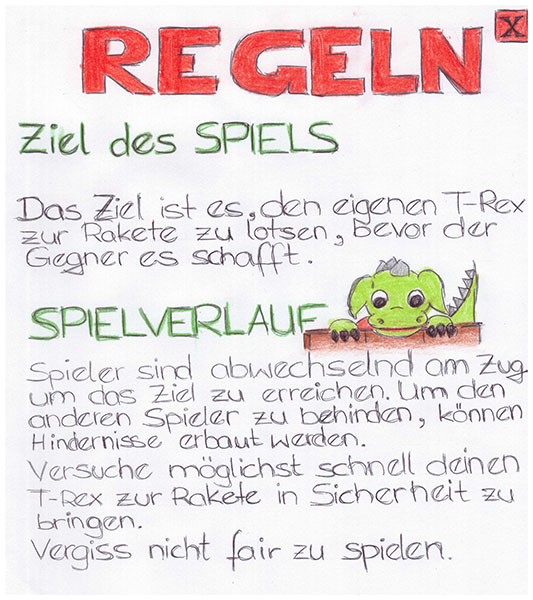 REGELN
X
Ziel des SPIELS
Das Ziel ist es, den eigenen T-Rex
zur Rakete zu lotsen, bevor der
Gegner es schafft.
SPIELVERLAUF
Spieler sind abwechselnd am Zug
um das Ziel zu erreichen. Um den
anderen Spieler zu behinden, können
Hindernisse erbaut werden.
Versuche möglichst schnell deinen
T-Rex zur Rakete in Sicherheit zu
bringen.
Vergiss nicht fair zu spielen.